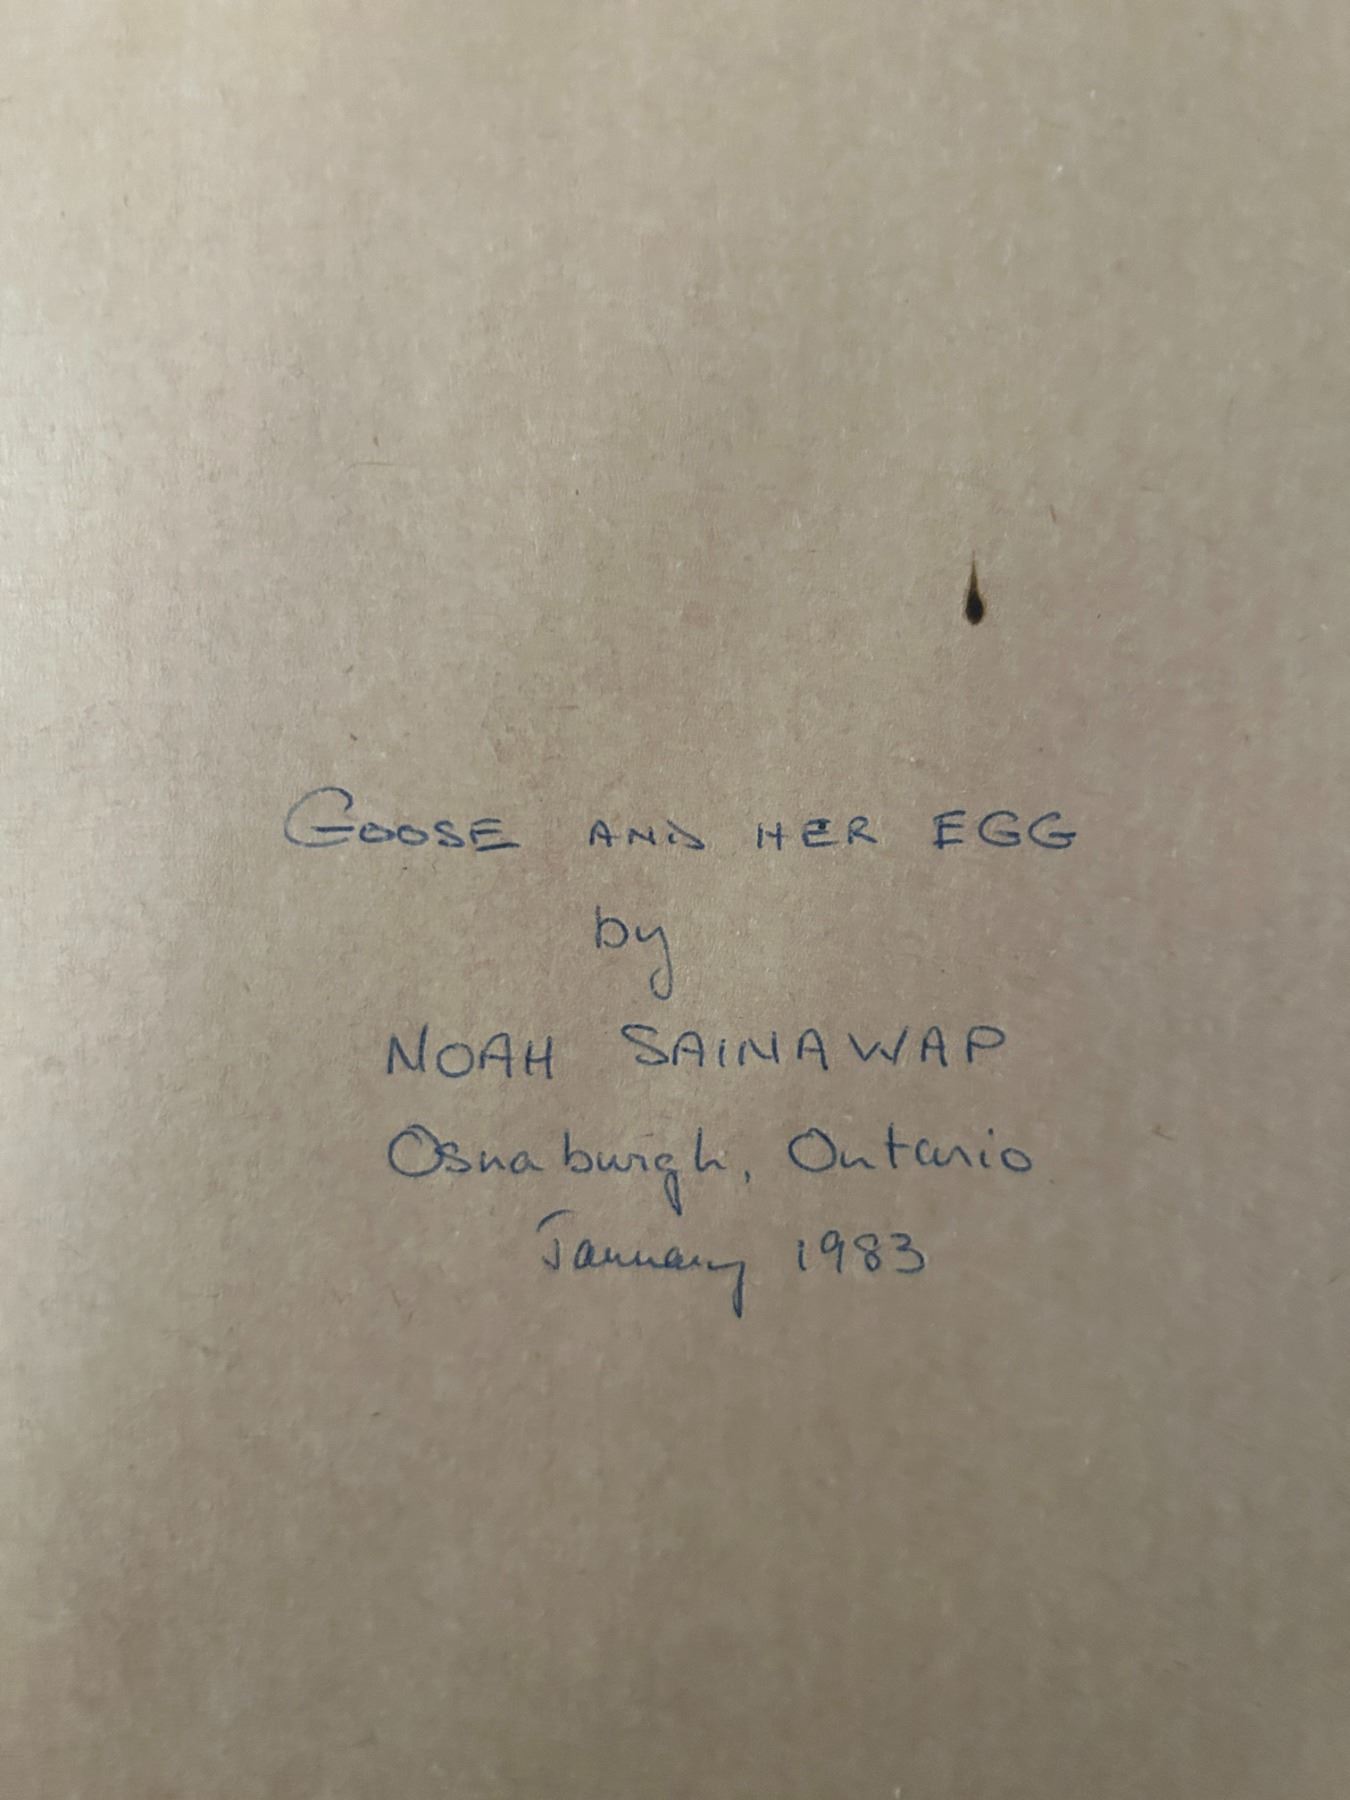 GOOSE AND HER EGG
by
NOAH SAINAWAP
Osnaburgh, Ontario
January 1983